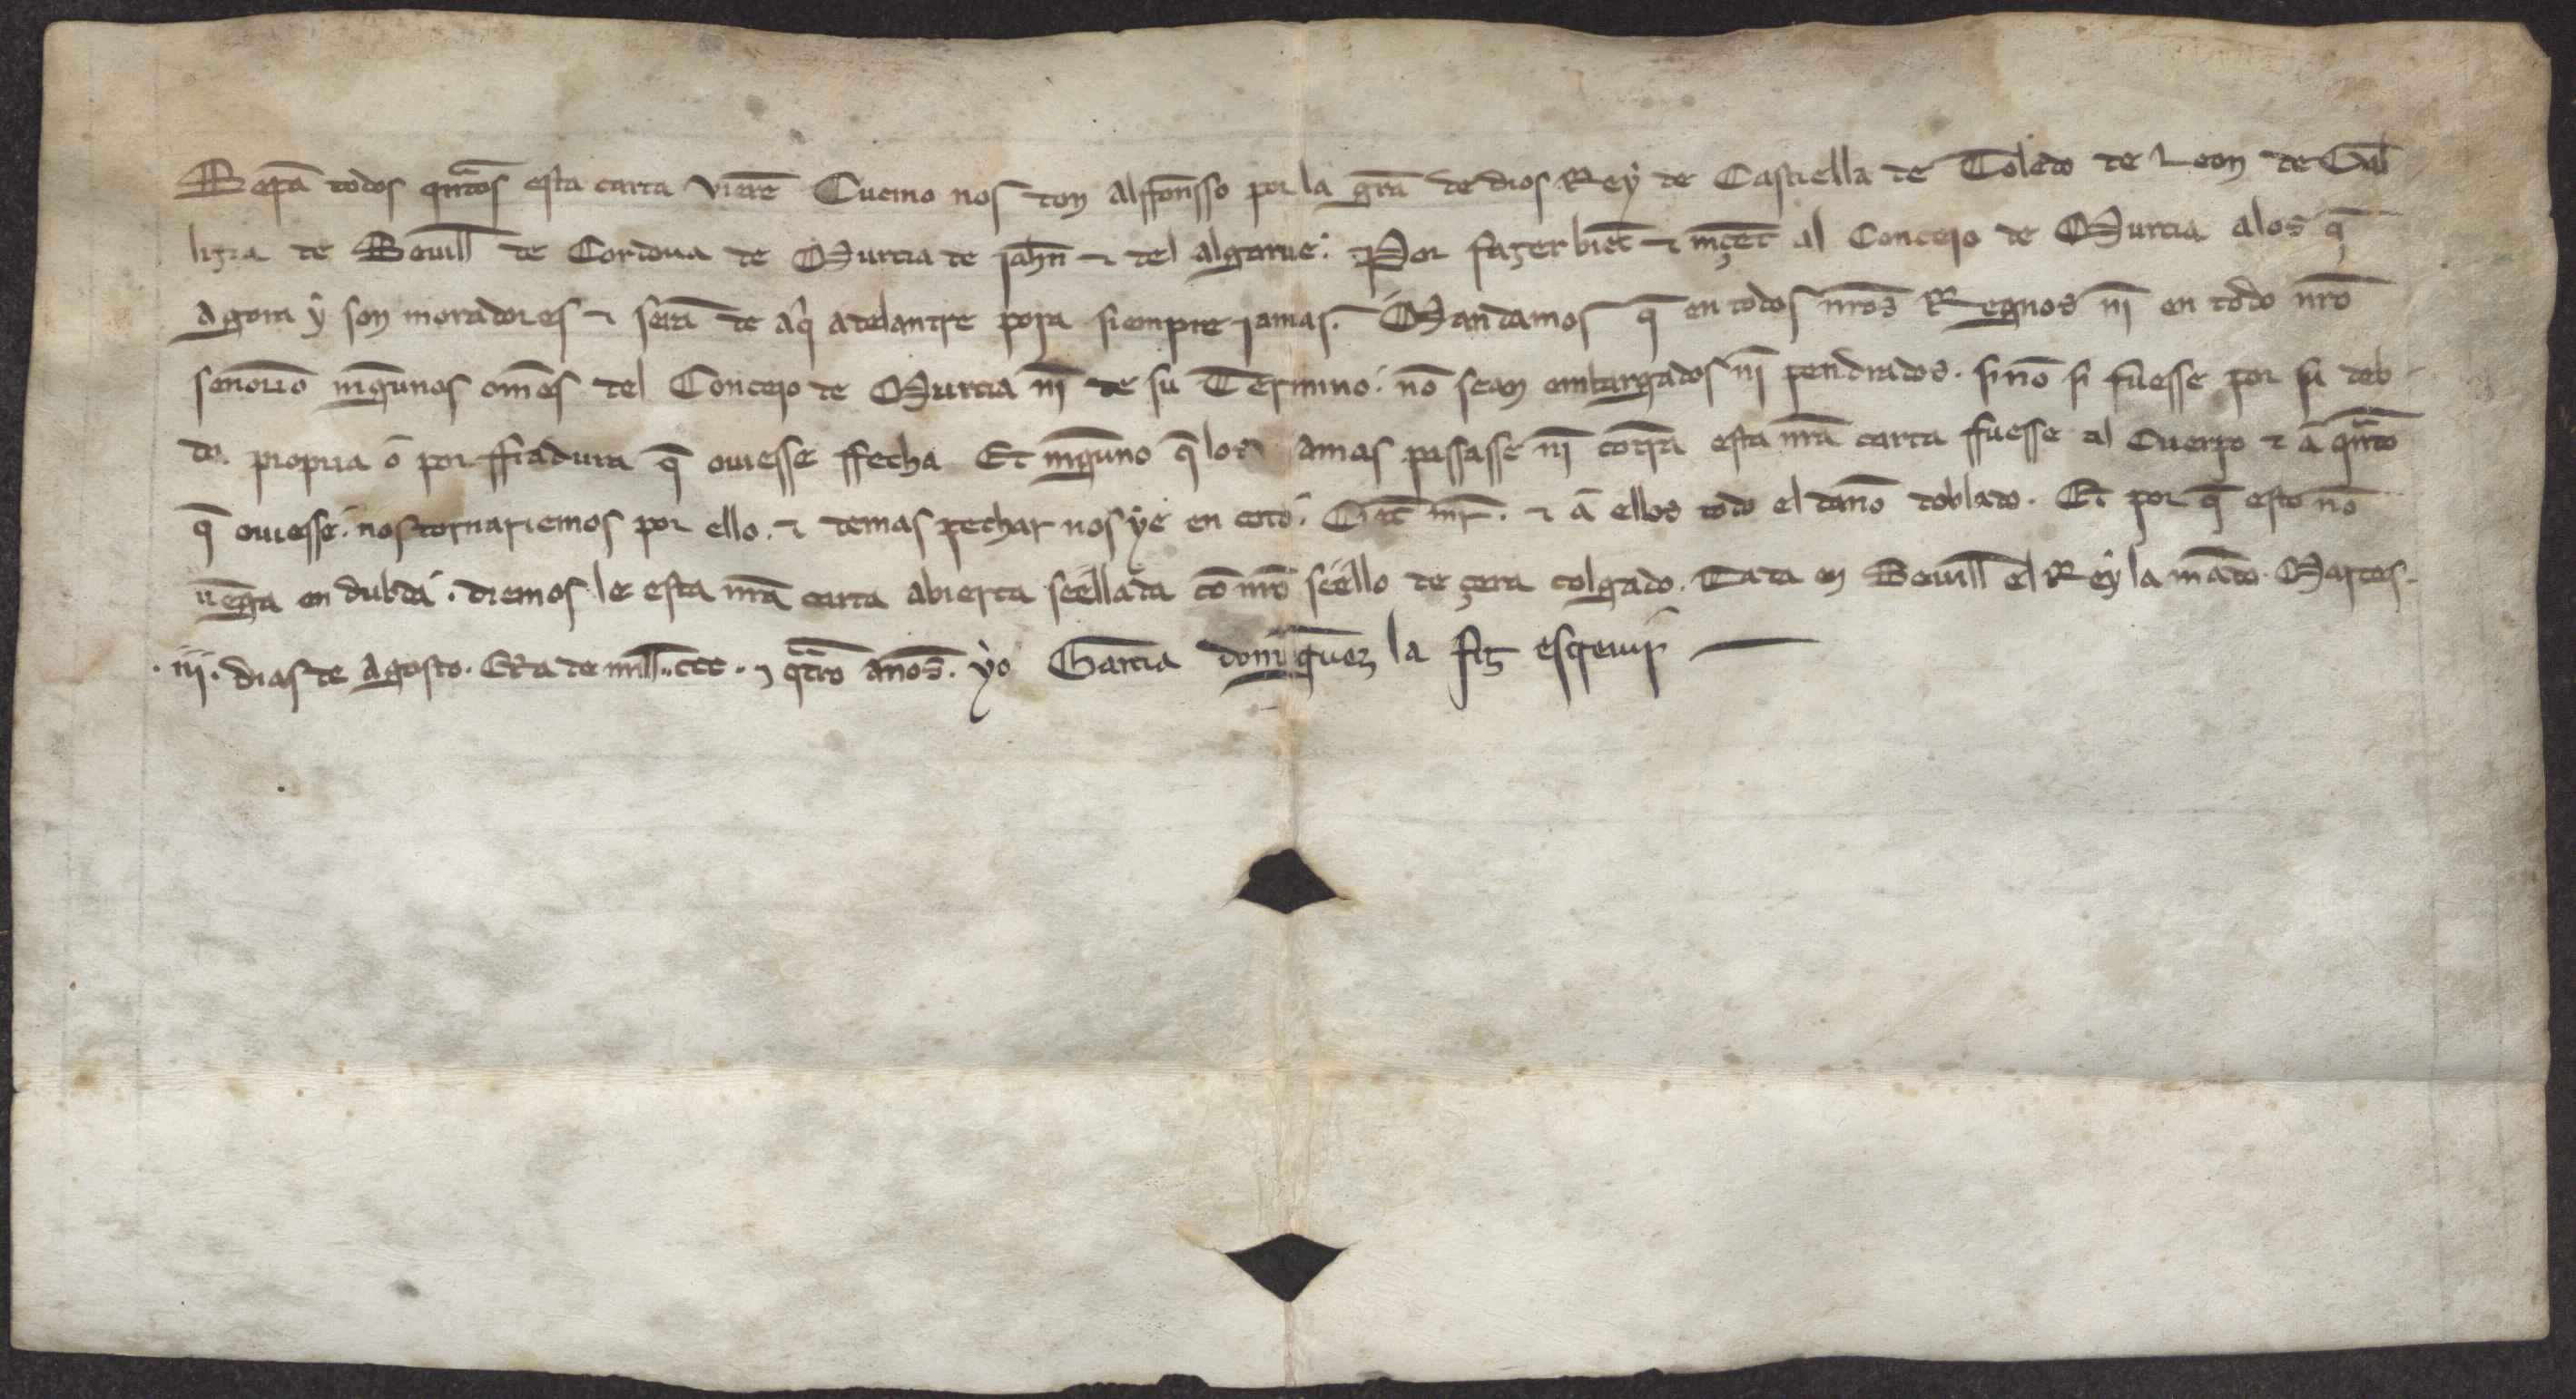 Sepã todos qntos esta carta vierẽ Cuemo nos don Alffonsso por la grã de dios Rey de Castiella de Toledo de Leon de Gal
lizia de Seuill de Cordoua de Murcia de Jahñ ⁊ del algarue. Por fazer biẽ ⁊ mrçet al Conceio de Murcia alos q̃
Agora y son moradores ⁊ serã de aqi adelantre pora siempre iamas. Mandamos q̃ en todos nr̃os Regnos nĩ en todo nr̃o
sennorio ningunos om̃es del Conceio de Murcia nĩ de su Termino. nõ sean embargados nĩ pendrados. sinõ si fuesse por su deb
da propria o por ffiadura q̃ ouiesse ffecha Et ninguno q̃ los amas passasse nĩ cotra esta nr̃a carta ffuesse al Cuerpo ⁊ a qnto
q̃ ouiesse. nos tornariemos por ello. ⁊ demas pechar nos ye en coto. Cient mr̃. ⁊ a ellos todo el danõ doblado. Et por q̃ esto nõ
uẽga en dubda. diemos le esta nr̃a carta abierta seellada cõ nr̃o seello de çera colgado. Dada en Seuill el Rey la mãdo. Martes.
.iij. dias de Agosto. Era de mill. ccc. ⁊ qtro anõs. yo Garcia domiguez la fiz escreuir